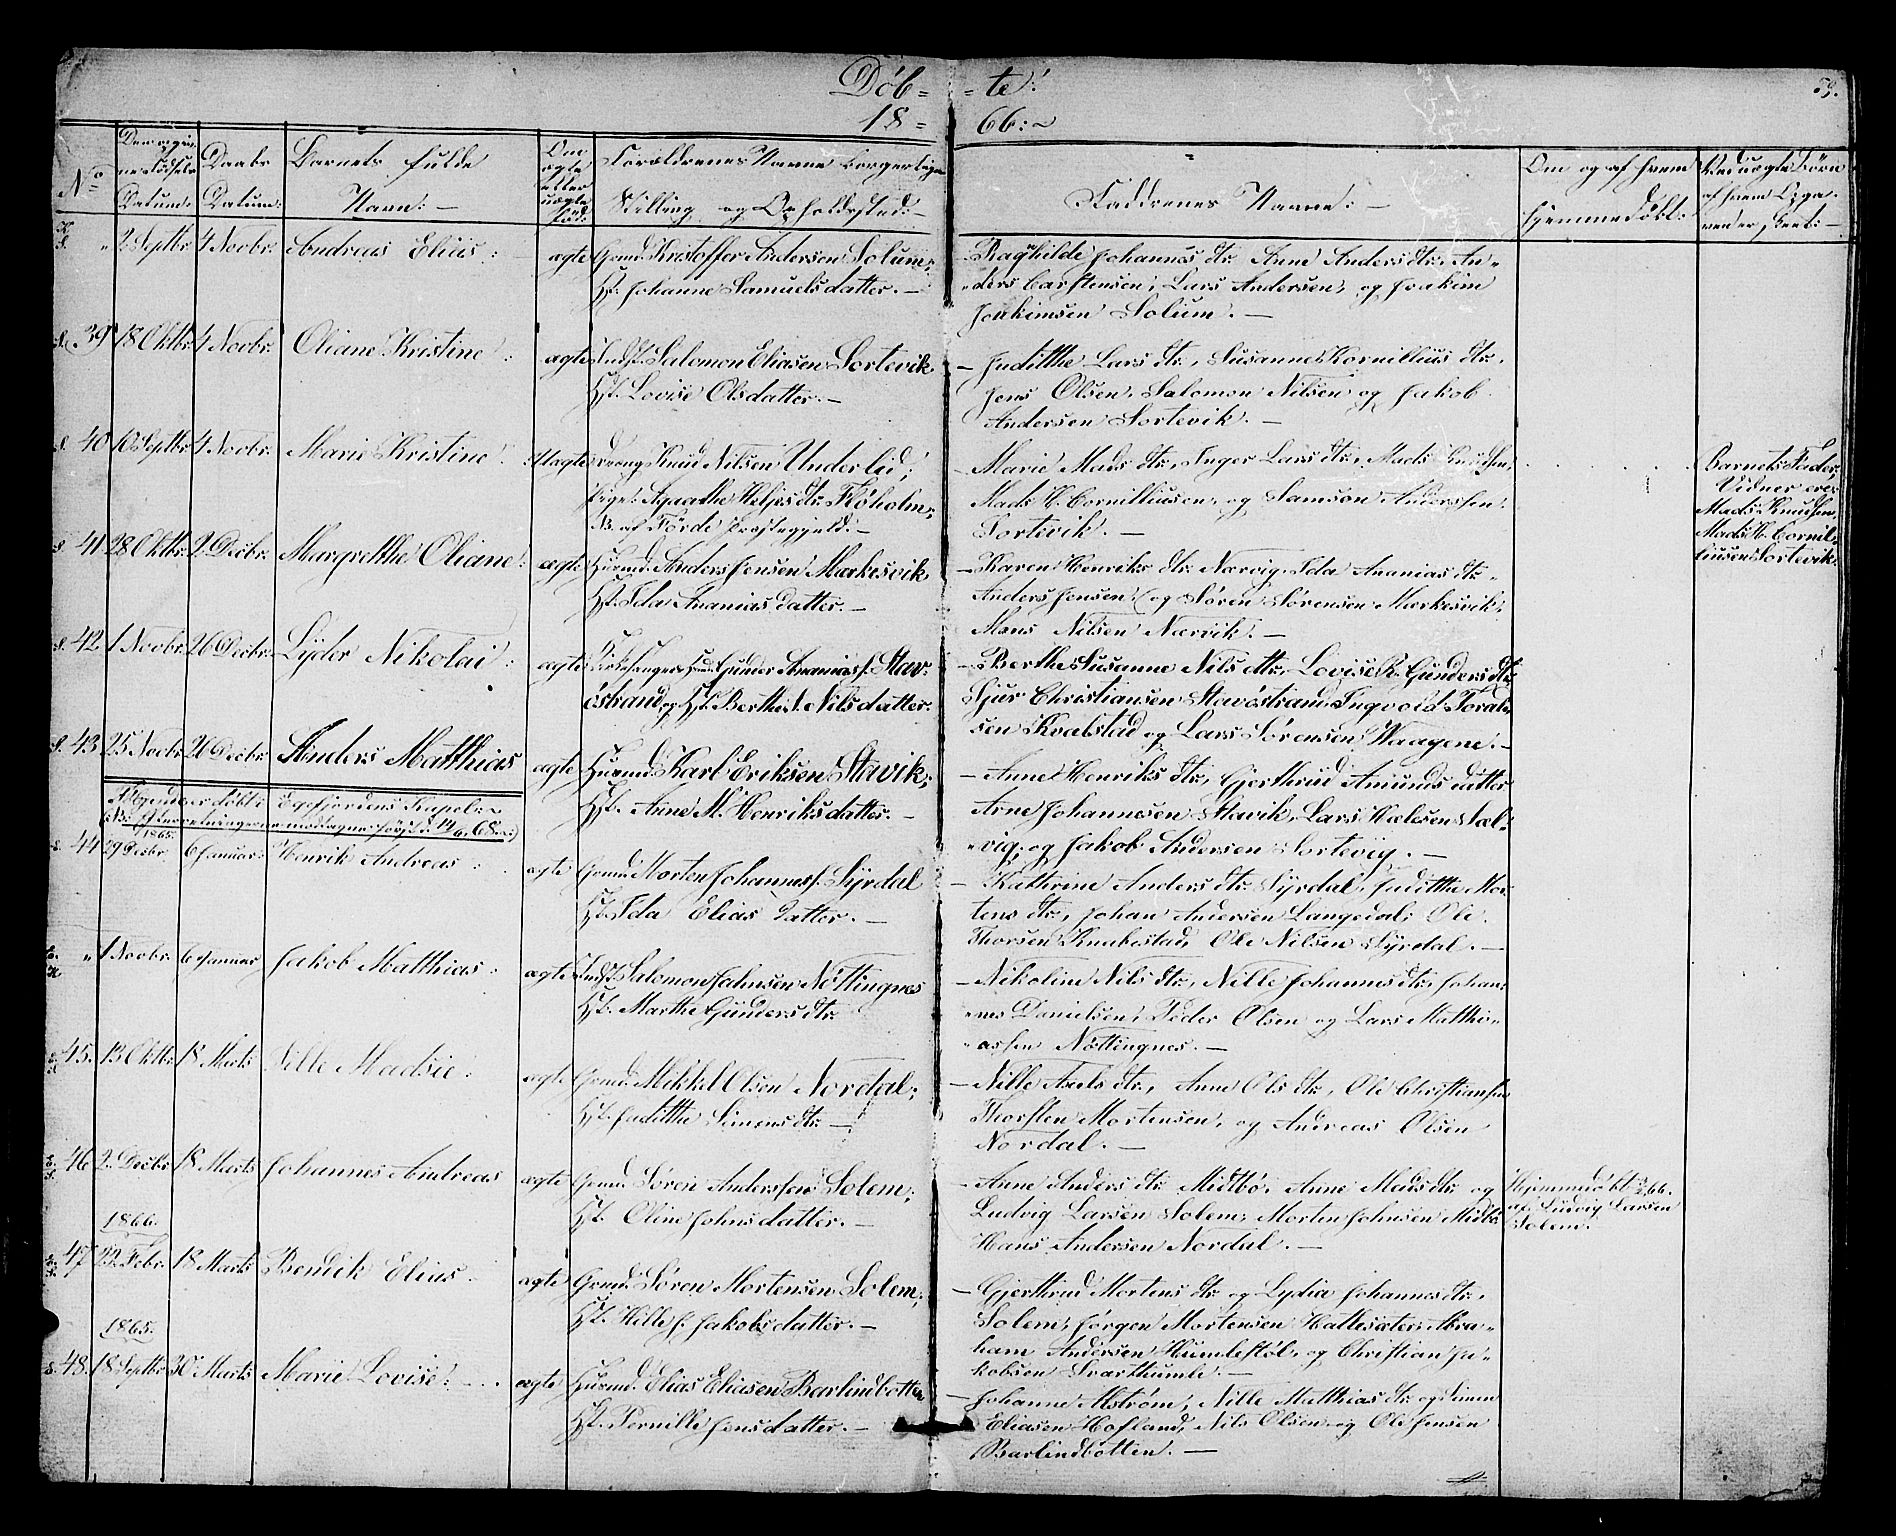 Døb= =te:
18= 66:~
59.
No
Datum:
Daabs
Datum:
Barnets fulde
Navn: —
Om
ægte
eller
uægte
fød:
Forældrenes Navne borgerlige
Stilling og Opholdsted: —
Faddrenes Navne: —
Om og af hvem
hjemmedøbt:
Ved uægte Børn
af hvem Opga-
ven er skeet: —
" 2 Septbr 4 Novbr. Andreas Elias: ægte Grmd. Kristoffer Andersen Solum;
Hst. Johanne Samuelsdatter. —
Raghilde Johannes dtr. Anne Anders dtr. An-
ders Carstensen, Lars Andersen, og Joakim
Joakimsen Solum. —
39 18 Oktbr 4 Novbr. Oliane Kristine: ægte Indst. Salomon Eliasen Sortevik
Hst. Lovise Olsdatter. —
— Judithe Lars dtr., Susanne Kornillius dtr.
Jens Olsen, Salomon Nilsen og Jakob
Andersen Sortevik. —
40 10 Septbr 4 Novbr. Marie Kristine: Uægte Knud Nilsen Underlid;
Pige. Agaathe Helje dtr. Fløholm
NB. af Førde Præstegjeld. —
— Marie Mads dtr., Inger Lars dtr., Mads Knudsen,
Mads H. Cornilliusen, og Samson Anderssen
Sortevik. —
Barnets Fader,
Vidner ere
Mads Knudsen,
Mads H. Cornil-
liusen Sortevik.
41 28 Oktbr. 2 Decbr. Margrethe Oliane: ægte Huusmd. Anders Jensen Markesvik,
Hst. Ida Ananias datter. —
— Karen Henriks dtr. Nærvig, Ida Ananias dtr.
Anders Jensen, og Søren Sørensen Markesvik,
Mons Nilsen Nærvik. —
42 1 Novbr. 26 Decbr. Lyder Nikolai: ægte Kirkesanger Gunder Ananias s. Stav-
østrand og Hst. Berthe S. Nils datter.
— Berthe Susanne Nils dtr., Lovise K. Gunders dtr
Sjur Christiansen Stavøstrand, Ingvold Toral-
sen Kvalstad og Lars Sørensen Waagene. —
43 25 Novbr 26 Decbr. Anders Matthias ægte Huusmd. Karl Eriksen Stavik;
Hst. Anne M. Henriksdatter. —
— Anne Henriks dtr., Gjerthrud Amunds datter
Arne Johannesen Stavik, Lars Hælesen Sæl-
vig, og Jakob Andersen Sortevig. —
følgende er døbt i Eg efjordens Kapel:
1865.
44 29 Decbr. 6 Januar: Henrik Andreas: ægte Grmd. Morten Johannes s. Syrdal
Hst. Ida Elias datter. —
— Kathrine Anders dtr. Syrdal, Judithe Mor-
tens dtr., Johan Andersen Langedal, Ole
Thorsen Knabestad, Ole Nilsen Syrdal. —
" 1 Novbr. 6 Januar Jakob Matthias: ægte Indst. Salomon Jahnsen Nøttingnes
Hst. Marthe Gunders dtr.
— Nikoline Nils dtr., Nille Johannes dtr., Johan-
nes Danielsen, Peder Olsen og Lars Matthi-
assen Nøttingnes. —
45. 13 Oktbr 18 Marts Nille Madsie: ægte Grmd. Mikkel Olsen Nordal;
Hst. Judithe Simens dtr. —
— Nille Axels dtr., Anne Ols dtr., Ole Christiansen
Thorsten Mortensen, og Andreas Olsen
Nordal. —
46 2. Decbr 18 Marts Johannes Andreas ægte Grmd. Søren Anderssen Solem;
Hst. Oline Johnsdatter. —
— Anne Anders dtr. Midtbø, Anne Mads dtr. og
Ludvig Larsen Solem, Morten Johnsen Midtb.
Hans Andersen Nordal. —
Hjemmedøbt 66.
af Ludvig Larsen
Solem.
1866.
47 22 Febr. 18 Marts Bendik Elias: ægte Grmd. Søren Mortensen Solem;
Hst. Hille J. Jakobsdatter. —
— Gjerthrud Mortens dtr. og Lydia Johannes dtr.
Solem, Jørgen Mortensen Hattesæter, Abra-
ham Andersen Humlestøl, og Christian Ja-
kobsen Svarthumle. —
1865.
48. 18 Septbr 30 Marts Marie Lovise: ægte Huusmd. Elias Eliasen Barlindbotten
Hst. Pernille Jensdatter. —
— Johanne Mstrøm, Nille Matthias dtr. og Simen
Eliasen Hofland, Nils Olsen og Ole Jensen
Barlindbotten. —